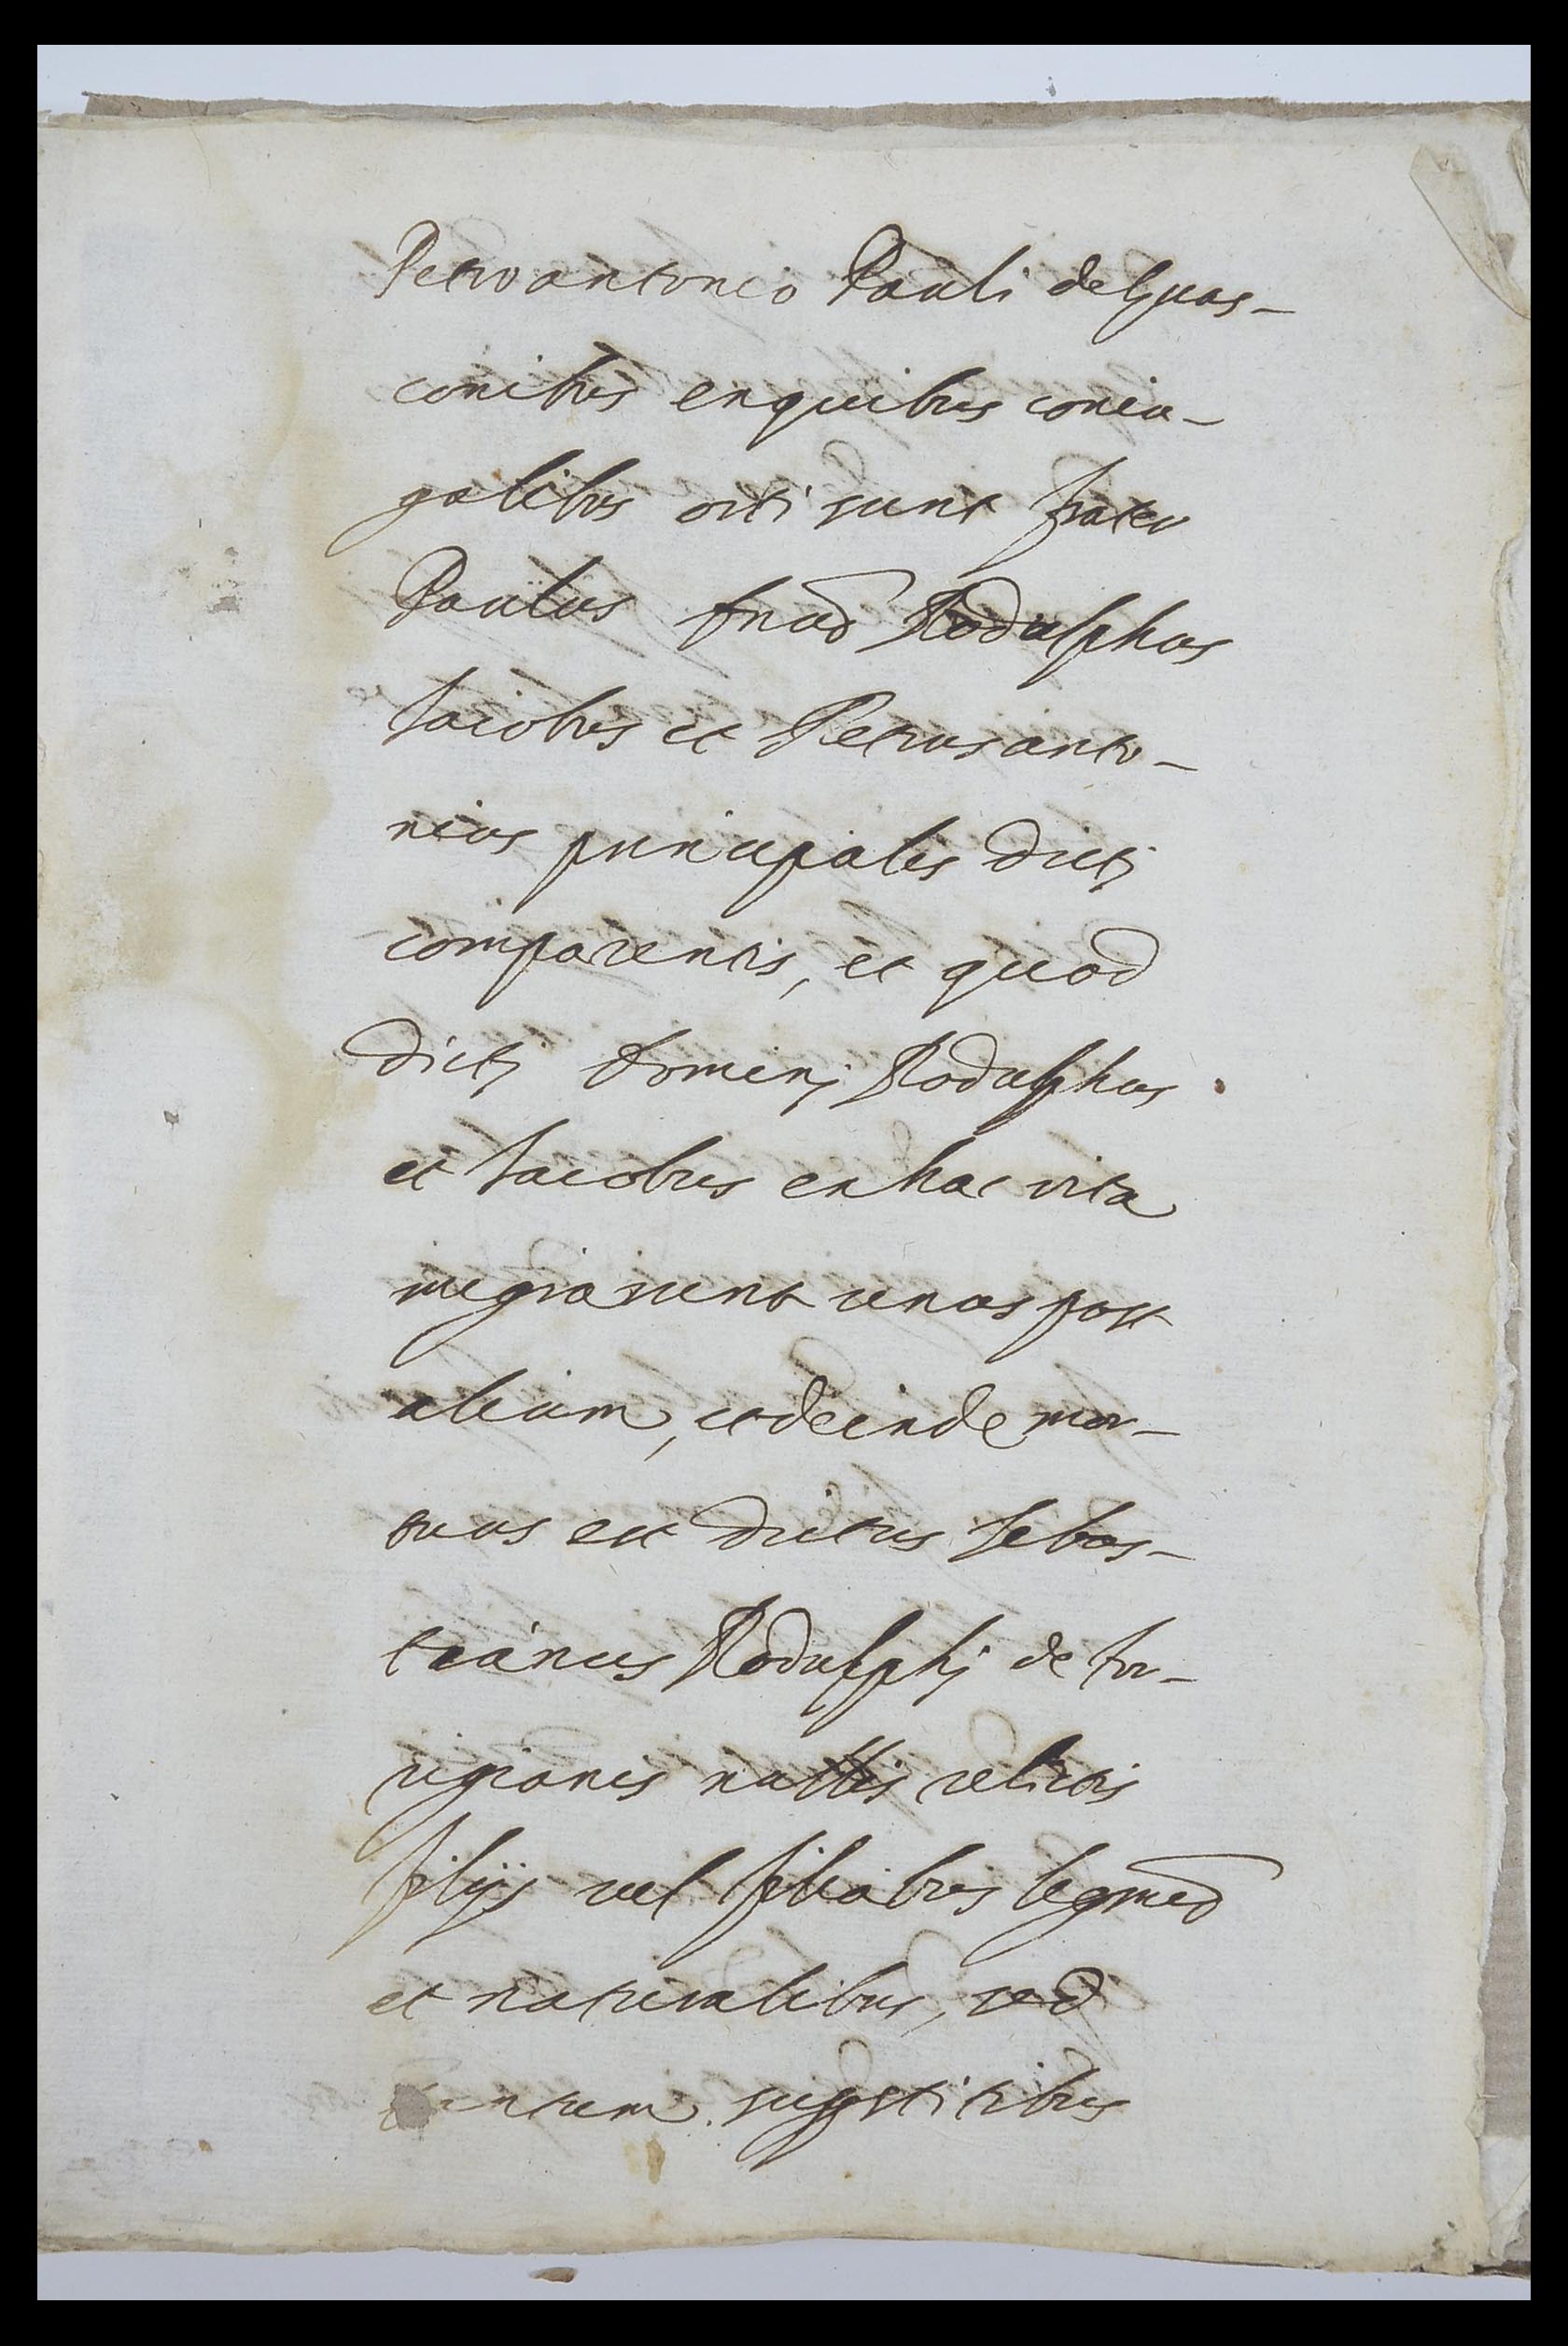 Petroantonio Pauli de Guas-
conibus ex quibus coniu-
galibus orti sunt frater
Paulus Rodulphus
Iacobus et Petrus anto-
nius principales dicti
comparentis, et quod
dicti Domini Rodulphus
et Iacobus ex hac vita
migrarunt unus post
alium, et deinde mor-
tuus est dictus Sebas-
tianus Rodulphi de Tor-
rigianis nullis relictis
filijs vel filiabus
et naturalibus, sed
tantum superstitibus